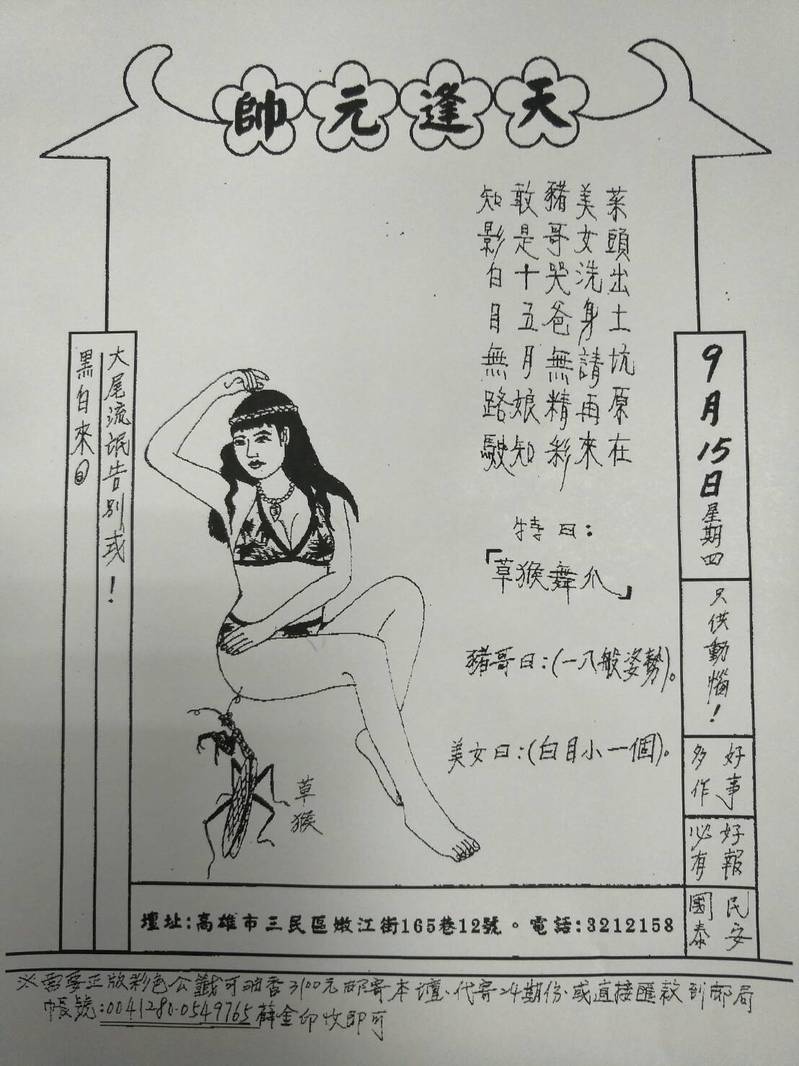 天逢元帥
菜頭出土坑原在
美女洗身請再來
豬哥哭爸無精彩
敢是十五月娘知
知影白目無路駛
特曰:
「草猴舞爪」
豬哥曰:(一八般姿勢)。
美女曰:(白目小一個)。
草猴
9月15日星期四
只供動惱!
好事
多作
好報
必有
民安
國泰
大尾流氓告別式!
黑白來
壇址:高雄市三民區嫩江街165巷12號。電話:3212158
※需要正版彩色公籤可油香3100元郵寄本壇、代寄24期份、或直接匯款到郵局
帳號:0041280-0549765薛金印收即可